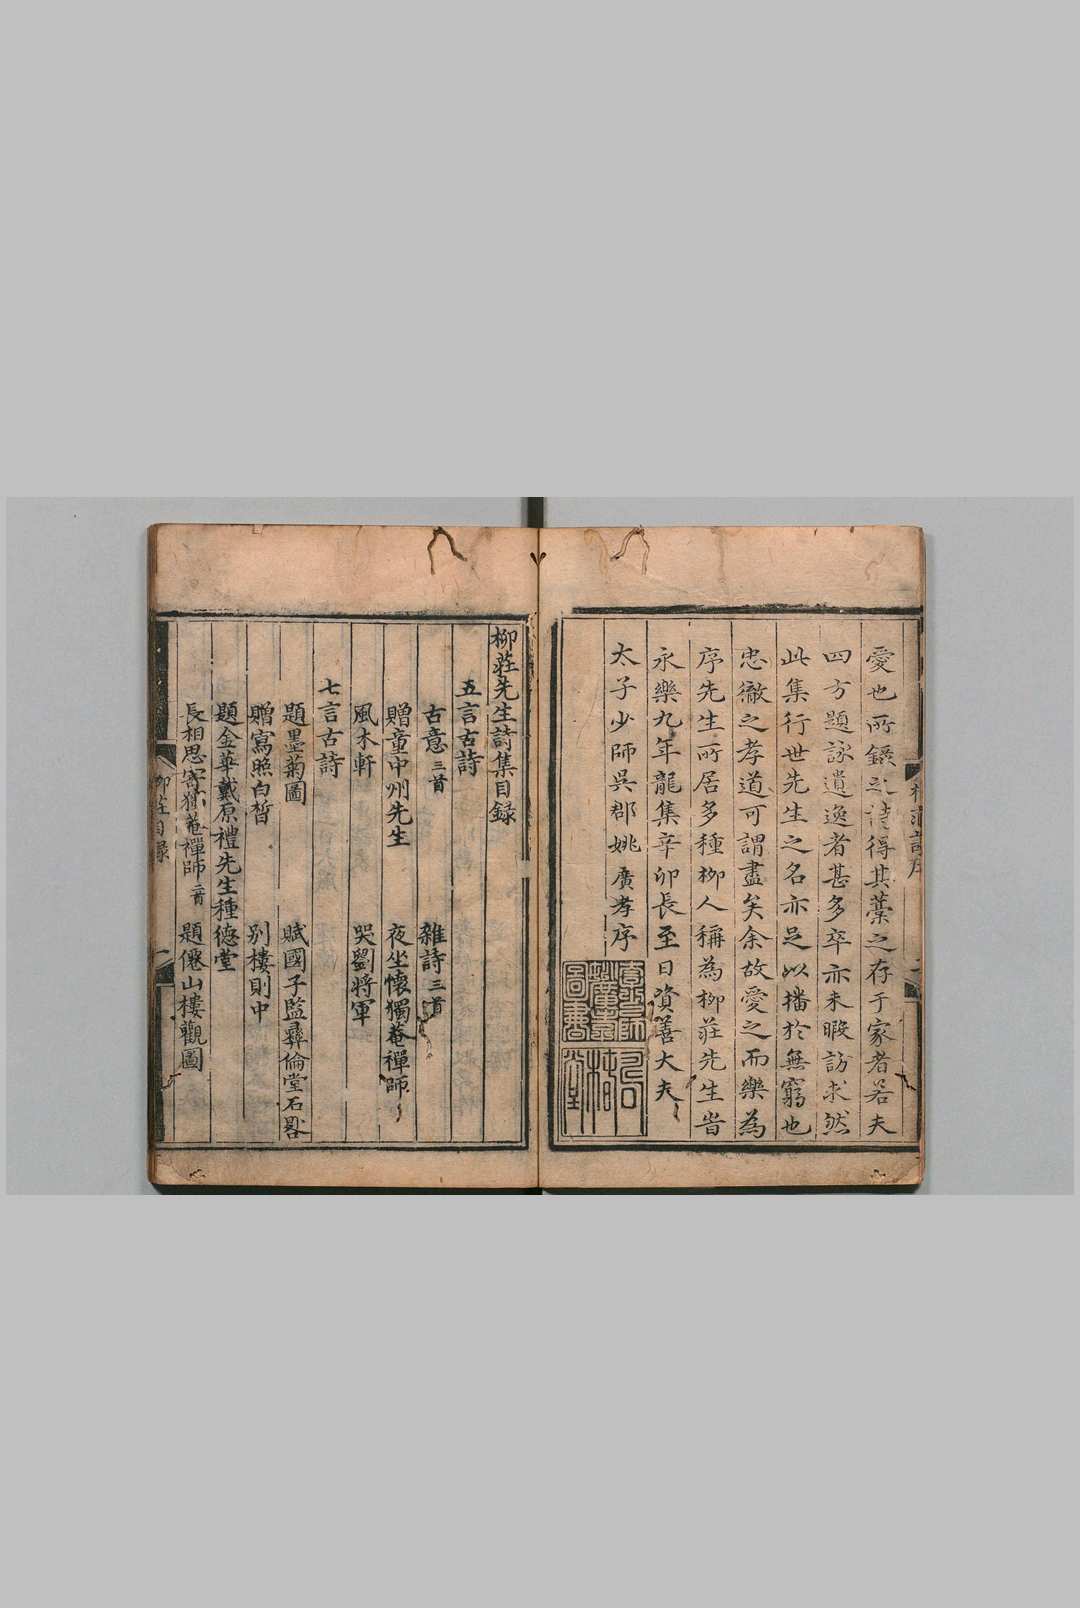 愛也所錄之詩得其藁之存于家者若夫
四方題詠遺逸者甚多卒亦未暇訪求然
此集行世先生之名亦足以播於無窮也
忠徹之孝道可謂盡矣余故愛之而樂為
序先生所居多種柳人稱為柳莊先生旹
永樂九年龍集辛卯長至日資善大夫
太子少師吳郡姚廣孝序
柳莊先生詩集目録
五言古詩
古意三首 雜詩三首
贈童中州先生 夜坐懷獨菴禪師
風木軒 哭劉將軍
七言古詩
題墨菊圖 賦國子監彝倫堂石
贈寫照白皙 别樓則中
題金華戴原禮先生種德堂
長相思寄獨菴禪師二首 題僊山樓觀圖
柳莊目録